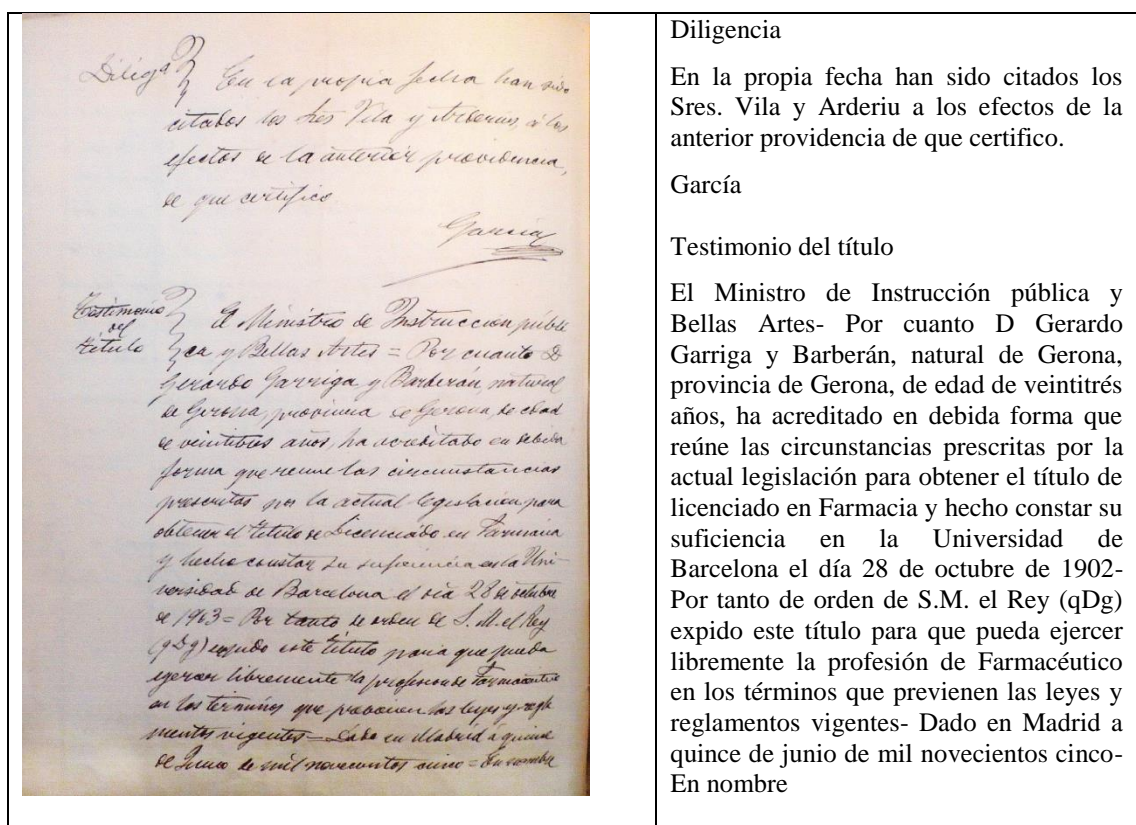 Diligª En la propia fecha han sido
citados los Sres Vila y Arderius, á los
efectos de la anterior providencia,
de que certifico
García
Testimonio
del
título
El Ministro de Instruccion públi
ca y Bellas Artes = Por cuanto D
Gerardo Garriga y Barberán, natural
de Gerona, provincia de Gerona, de edad
de veintitres años, ha acreditado en debida
forma que reune las circunstancias
prescritas por la actual legislacion para
obtener el título de Licenciado en Farmacia
y hecho constar su suficiencia en la Uni-
versidad de Barcelona el dia 28 de octubre
de 1903 = Por tanto de orden de S. M. el Rey
(q D g) expido este título para que pueda
ejercer libremente la profesion de Farmaceutico
en los términos que previenen las leyes y regla
mentos vigentes = Dado en Madrid á quince
de Junio de mil novecientos cinco = En nombre
Diligencia
En la propia fecha han sido citados los
Sres. Vila y Arderiu a los efectos de la
anterior providencia de que certifico.
García
Testimonio del título
El Ministro de Instrucción pública y
Bellas Artes- Por cuanto D Gerardo
Garriga y Barberán, natural de Gerona,
provincia de Gerona, de edad de veintitrés
años, ha acreditado en debida forma que
reúne las circunstancias prescritas por la
actual legislación para obtener el título de
licenciado en Farmacia y hecho constar su
suficiencia en la Universidad de
Barcelona el día 28 de octubre de 1902-
Por tanto de orden de S.M. el Rey (qDg)
expido este título para que pueda ejercer
libremente la profesión de Farmacéutico
en los términos que previenen las leyes y
reglamentos vigentes- Dado en Madrid a
quince de junio de mil novecientos cinco-
En nombre